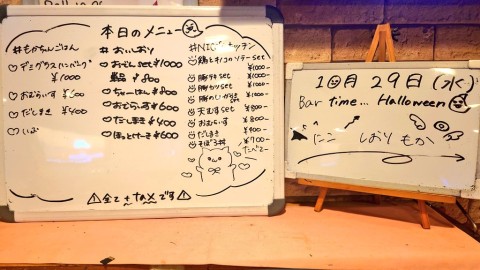 本日のメニュー
#もかちんごはん
デミグラスハンバーグ
¥1000
おむらいす ¥800
だしまき ¥400
#おいしおり
おでんset ¥1000
単品 ¥800
ちゃーはん ¥800
おむらいす ¥700
だしまき ¥400
ほっとけーき ¥600
#NICOキッチン
鶏ときのこのソテーset
¥1000-
豚キムチset ¥1000-
豚カツset ¥1000-
豚のしょうが焼きset ¥1000-
天むすset ¥800-
おむらいす ¥800-
だしまき ¥400-
そぼろ丼 ¥700-
たべて〜
⚠全て
です⚠
10月29日(水)
Bar time... Halloween
にこ しおり もか